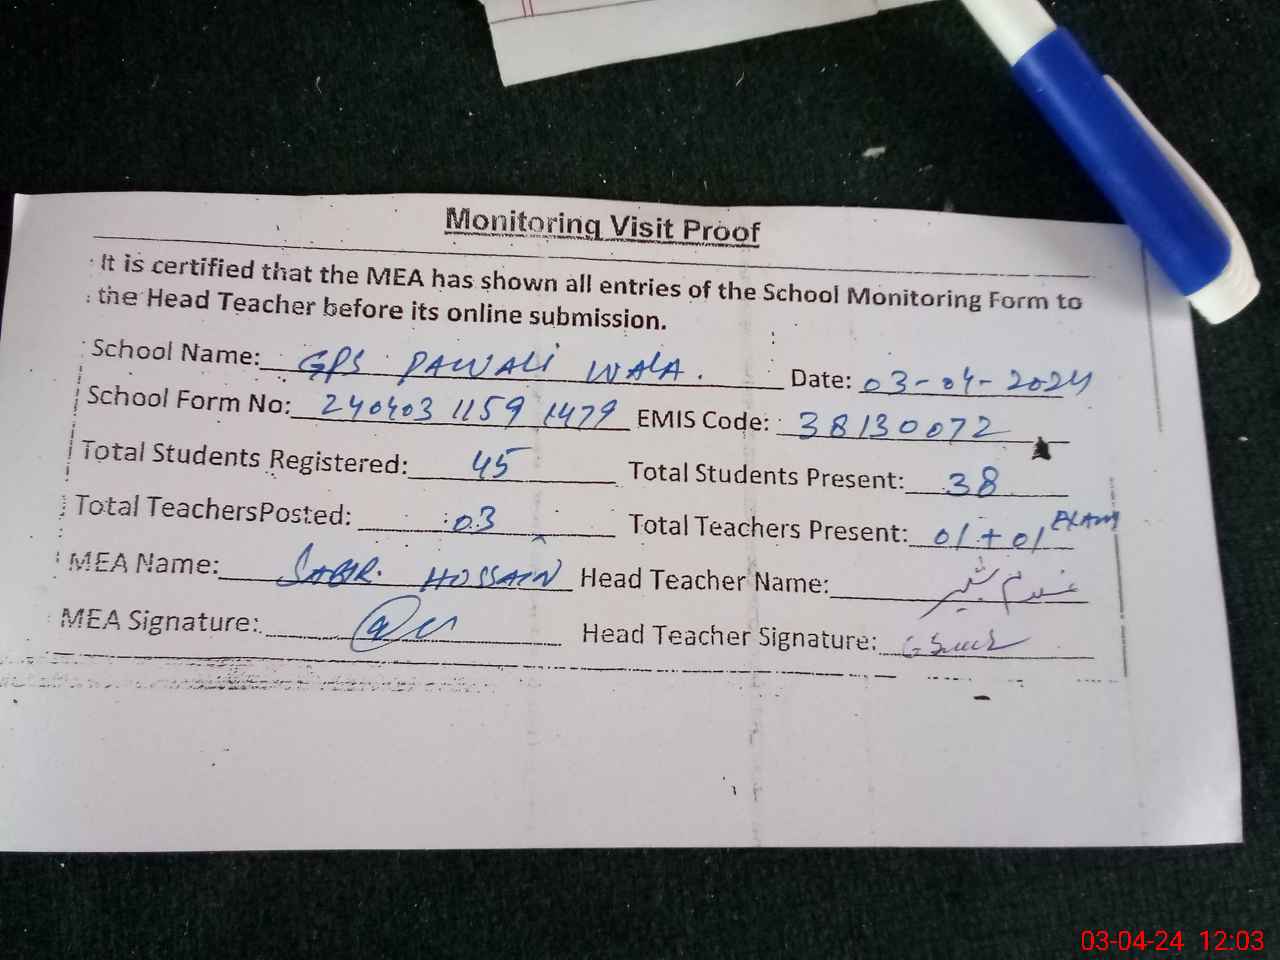 Monitoring Visit Proof
It is certified that the MEA has shown all entries of the School Monitoring Form to
the Head Teacher before its online submission.
School Name: GPS PAWALI WALA. Date: 03-04-2024
School Form No: 240403 1159 1479 EMIS Code: 38130072
Total Students Registered: 45 Total Students Present: 38
Total TeachersPosted: 03 Total Teachers Present: 01+01 EXAM
MEA Name: SABIR. HOSSAIN Head Teacher Name:
MEA Signature: Head Teacher Signature:
03-04-24 12:03